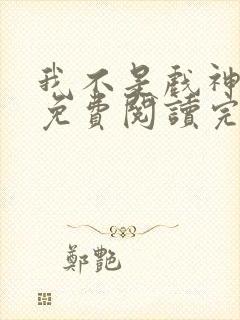 我不是戲神
免費閱讀完
鄭艷